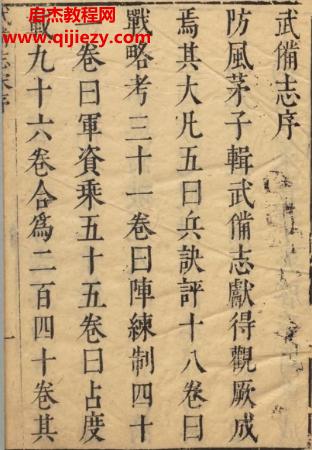 武備志序
防風茅子輯武備志獻得觀厥成
焉其大凡五曰兵訣評十八卷曰
戰略考三十一卷曰陣練制四十
一卷曰軍資乘五十五卷曰占度
載九十六卷合爲二百四十卷其
启杰教程网
www.qijiezy.com